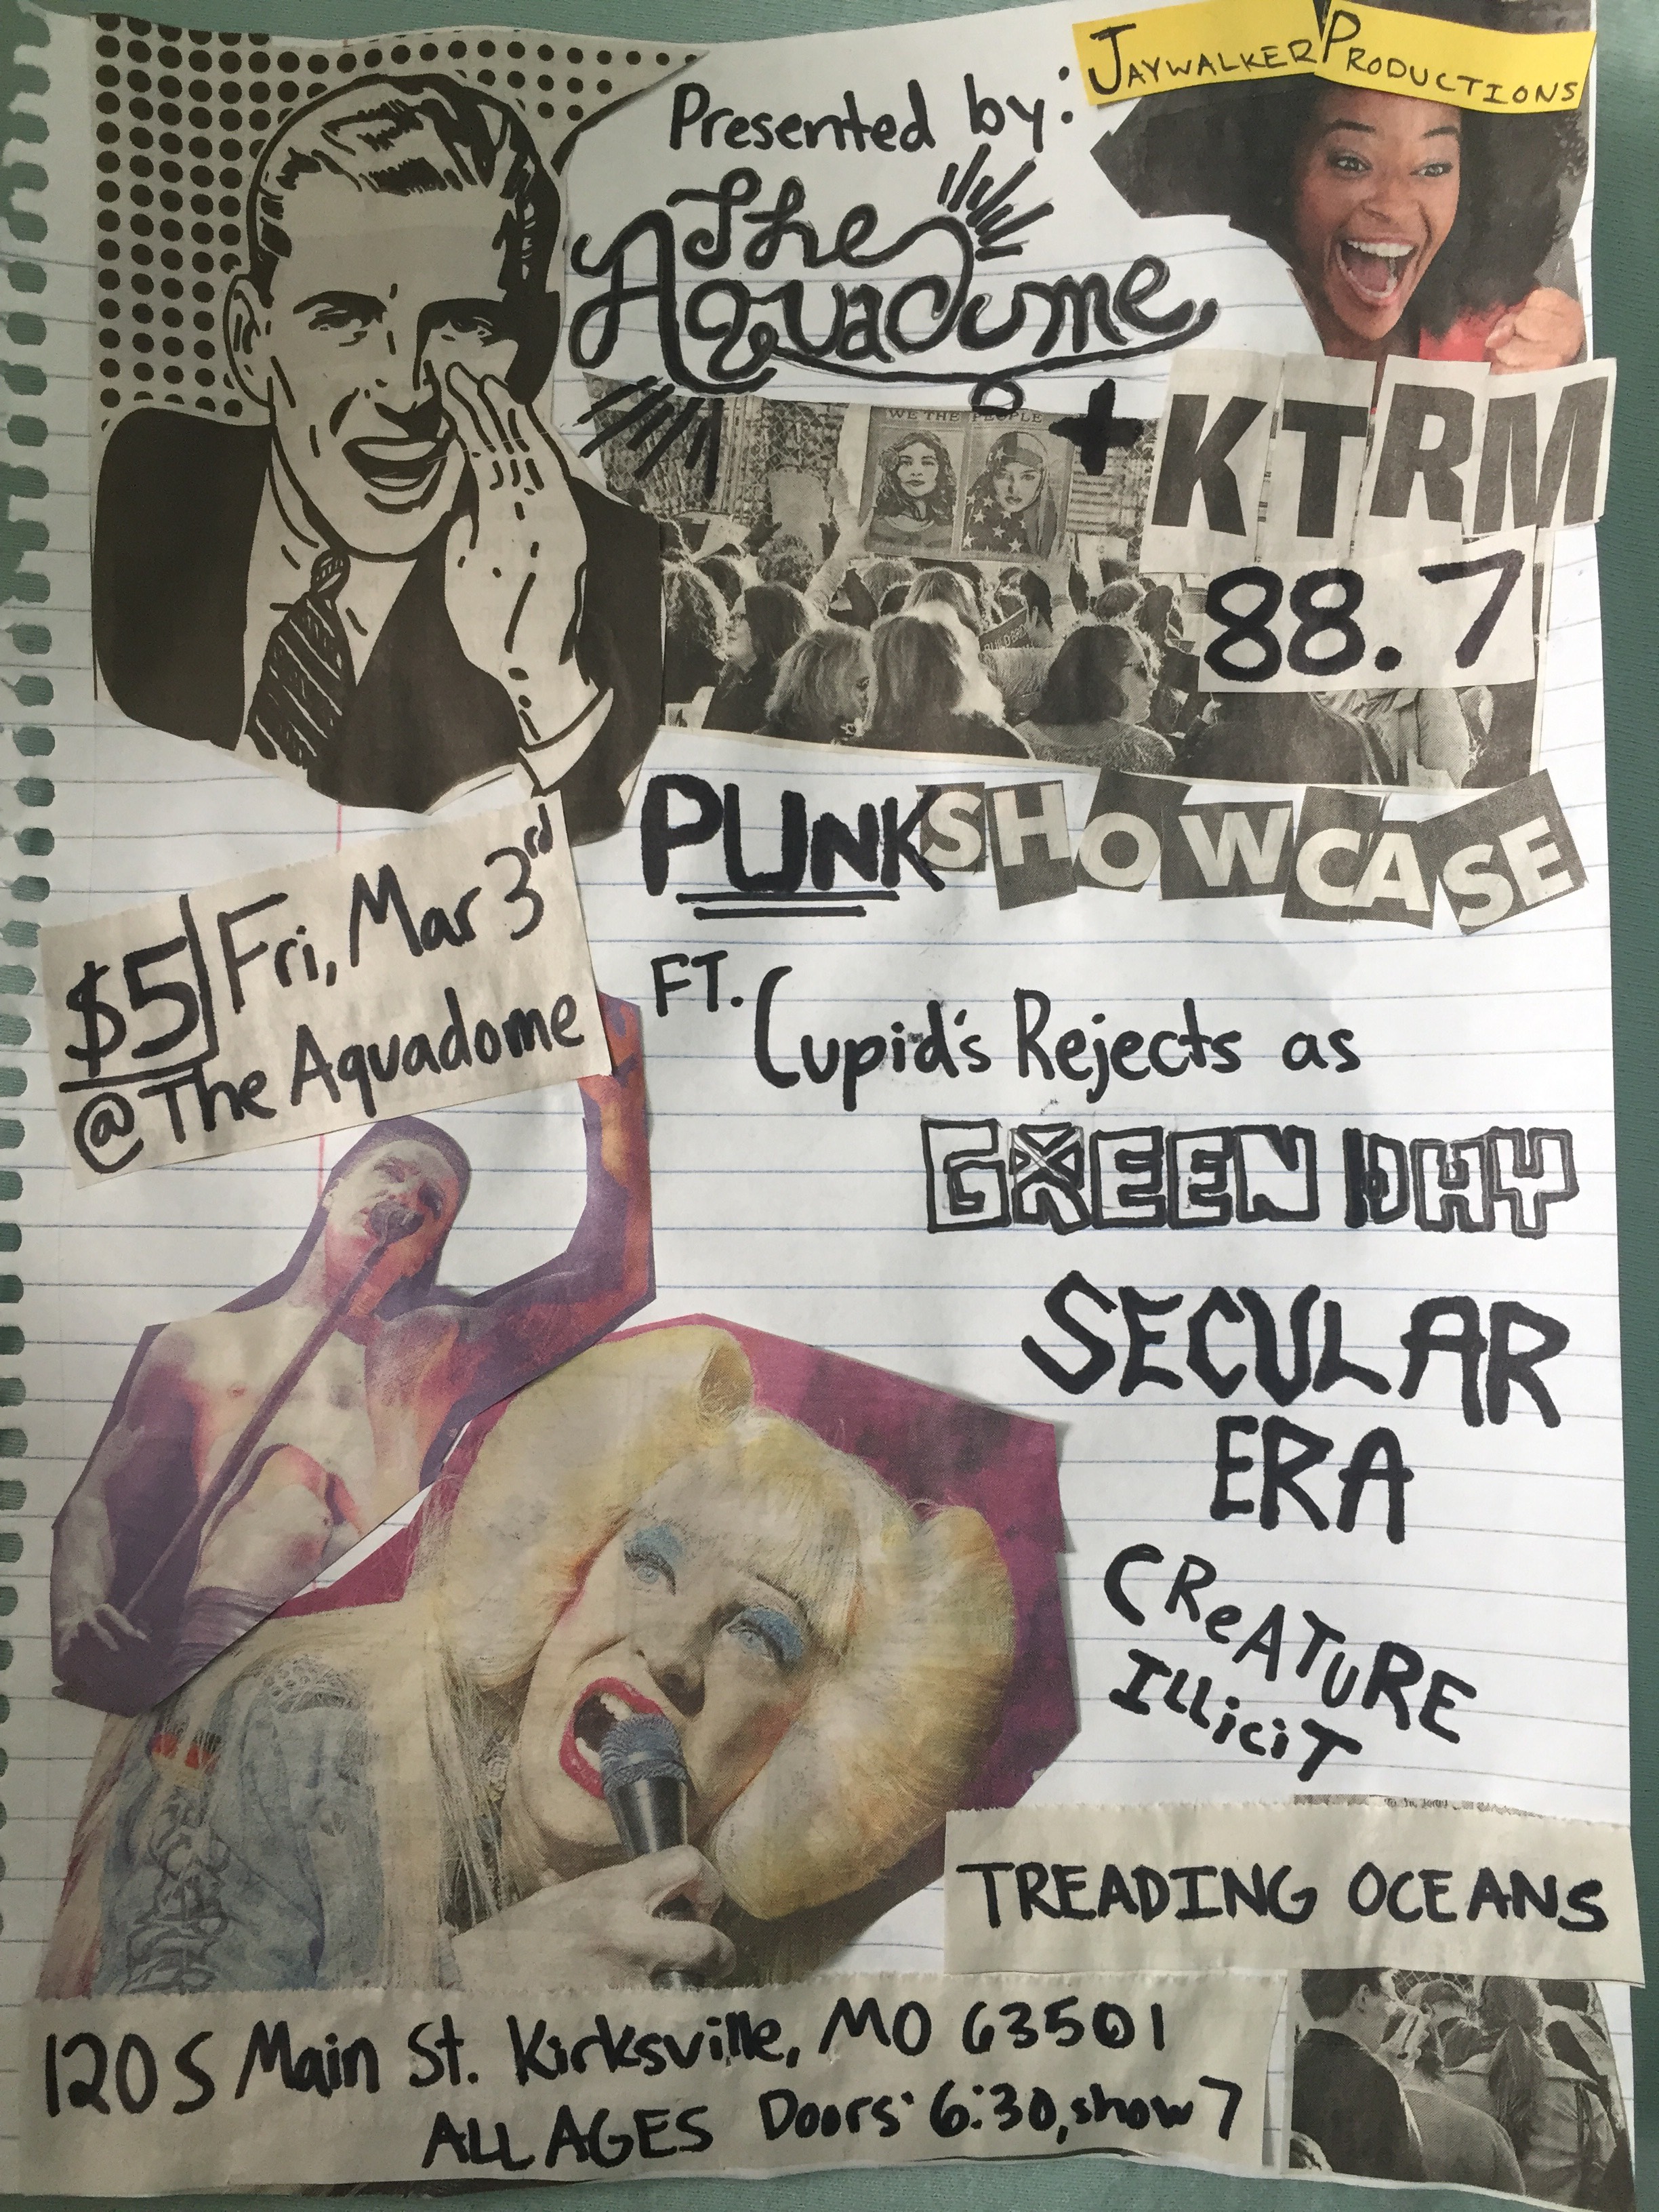 JAYWALKER PRODUCTIONS
Presented by:
The
Aquadome
+ KTRM
88.7
WE THE PEOPLE
PUNK SHOWCASE
$5 Fri, Mar 3rd
@ The Aquadome
FT. Cupid's Rejects as
GREEN DAY
SECULAR
ERA
CReATuRE
ILLiciT
TREADING OCEANS
120 S Main St. Kirksville, MO 63501
ALL AGES Doors: 6:30, show 7